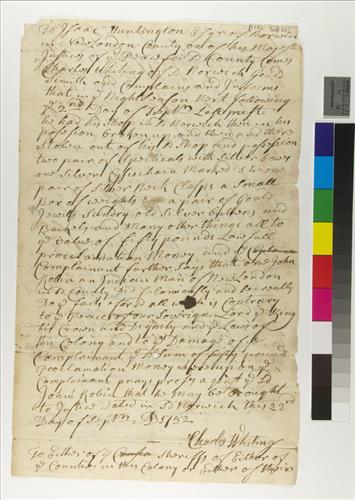 To Isaac Huntington Esqr of Norwich
in New London County one of his Majesties
Justices of ye Peace for Sd County Comes
Charles Whiting of Sd Norwich Gold
Smith and Complains and Informs
that in ye Night Season Next following
ye 2nd Day of Septm Last past
he had his Shop in Sd Norwich then in his
possesion broken up and then and there
Stolen out of his Sd Shop and possesion
two pair of Specticals with Silver bows
one Silver Chain Marked one
pair of Silver Neck Clasps a Small
Box of weights a pair of Gold
Jewels Sundry old Silver buttons and
Buckels and Many other things all to
ye Value of fifty pounds Lawfull
proclamation Money and ye
Complainant further Says that one John
Robin an Indian Man of New London
in Sd County Did felloniously and
all which is Contrary
to ye Peace of our Soverign Lord ye King
his Crown and Dignity and ye Laws of
this Colony and to ye Damage of ye
Complainant ye Sum of fifty pounds
Proclamation Money whereupon ye
Complainant prays
John Robin that he May be brought
to Justice Dated in Sd Norwich this 23rd
Day of Septm AD 1752
Charles Whiting
To Either of ye Sheriffs of Either of
ye Counties in this Colony or Either of their